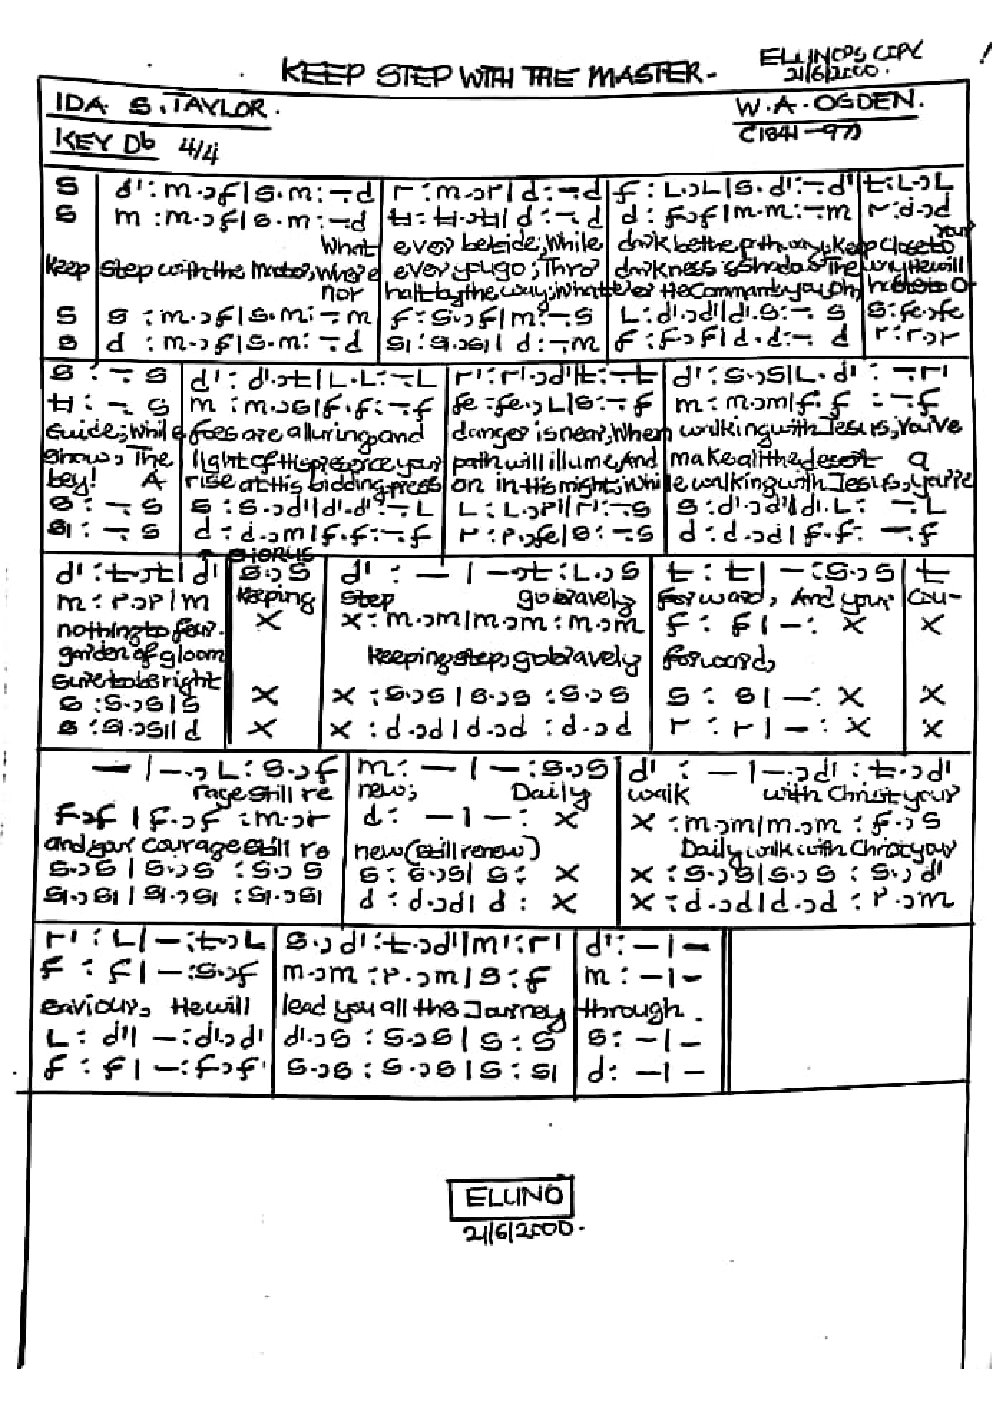 KEEP STEP WITH THE MASTER.
ELUNO'S COPY
21/6/2000.
IDA S. TAYLOR.
W.A. OGDEN.
(1841-97)
KEY Db 4/4
S | d' : m .,f | S . m : - . d | r : m .,r | d : - . d | f : L .,L | S . d' : - . d' | t : L .,L
S | m : m .,f | S . m : - . d | t1 : t1 .,t1 | d : - . d | d : f .,f | m . m : - . m | r : d .,d
What ever betide; While dark be the pathway, Keep close to your
Keep Step with the Master, Where ever you go; Thro' darkness & Shadow The way He will
nor halt by the way; What e'er He Commands you Oh, hasten to O-
S | S : m .,f | S . m : - . m | f : S .,f | m : - . S | L : d' .,d' | d' . S : - . S | S : fe .,fe
S | d : m .,f | S . m : - . d | S1 : S1 .,S1 | d : - . m | f : f .,f | d . d : - . d | r : r .,r
S : - . S | d' : d' .,t | L . L : - . L | r' : r' .,d' | t : - . t | d' : S .,S | L . d' : - . r'
t1 : - . S | m : m .,S | f . f : - . f | fe : fe .,L | S : - . f | m : m .,m | f . f : - . f
Guide; While foes are alluring, and danger is near, When walking with Jesus, You've
Show; The light of His presence your path will illume, And make all the desert a
bey! A rise at His bidding, press on in His might; While walking with Jesus, you're
S : - . S | S : S .,d' | d' . d' : - . L | L : L .,r' | r' : - . S | S : d' .,d' | d' . L : - . L
S1 : - . S | d : d .,m | f . f : - . f | r : r .,fe | S : - . S | d : d .,d | f . f : - . f
CHORUS
d' : t .,t | d' | S .,S | d' : - | - .,t : L .,S | t : t | - : S .,S | t
m : r .,r | m | Keeping Step go bravely forward, And your Cou-
nothing to fear. X | X : m .,m | m .,m : m .,m | f : f | - : X | X
garden of gloom Keeping step, go bravely forward,
Sure to be right
S : S .,S | S | X | X : S .,S | S .,S : S .,S | S : S | - : X | X
S : S1 .,S1 | d | X | X : d .,d | d .,d : d .,d | r : r | - : X | X
- | - ., L : S .,f | m : - | - : S .,S | d' : - | - .,d' : t .,d'
rage still re new; Daily walk with Christ your
f .,f | f .,f : m .,r | d : - | - : X | X : m .,m | m .,m : f .,S
and your courage still re new (still renew) Daily walk with Christ your
S .,S | S .,S : S .,S | S : S .,S | S : X | X : S .,S | S .,S : S .,d'
S1 .,S1 | S1 .,S1 : S1 .,S1 | d : d .,d | d : X | X : d .,d | d .,d : r .,m
r' : L | - : t .,L | S .,d' : t .,d' | m' : r' | d' : - | -
f : f | - : S .,f | m .,m : r .,m | S : f | m : - | -
Saviour, He will lead you all the Journey through.
L : d' | - : d' .,d' | d' .,S : S .,S | S : S | S : - | -
f : f | - : f .,f | S .,S : S .,S | S : S1 | d : - | -
ELUNO
21/6/2000.